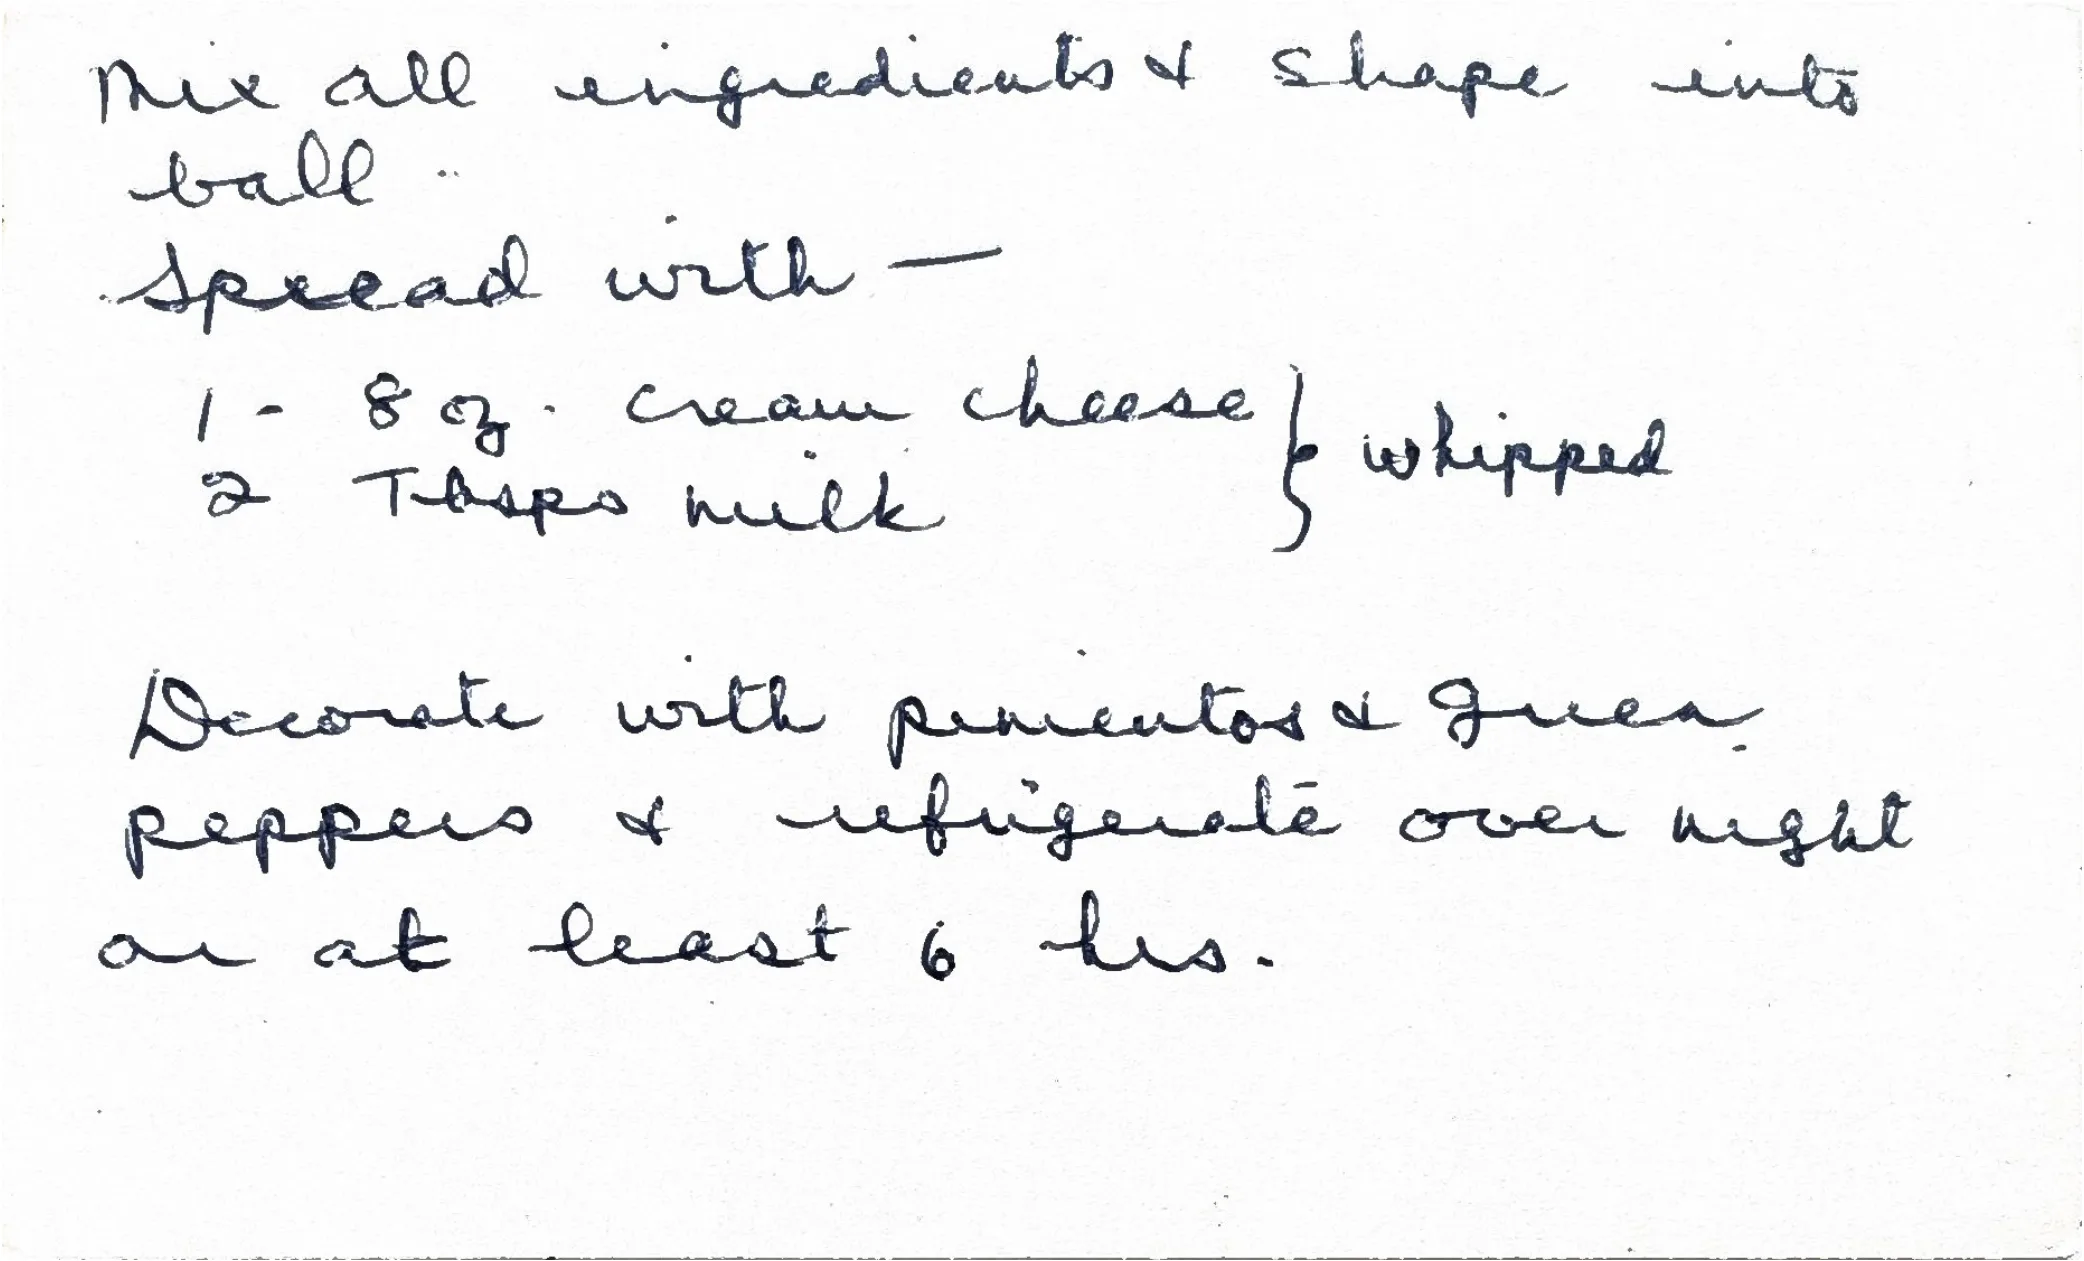 Mix all ingredients & shape into
ball
Spread with —
1 - 8 oz. cream cheese } whipped
2 Tbsps milk
Decorate with pimentos & green
peppers & refrigerate over night
or at least 6 hrs.